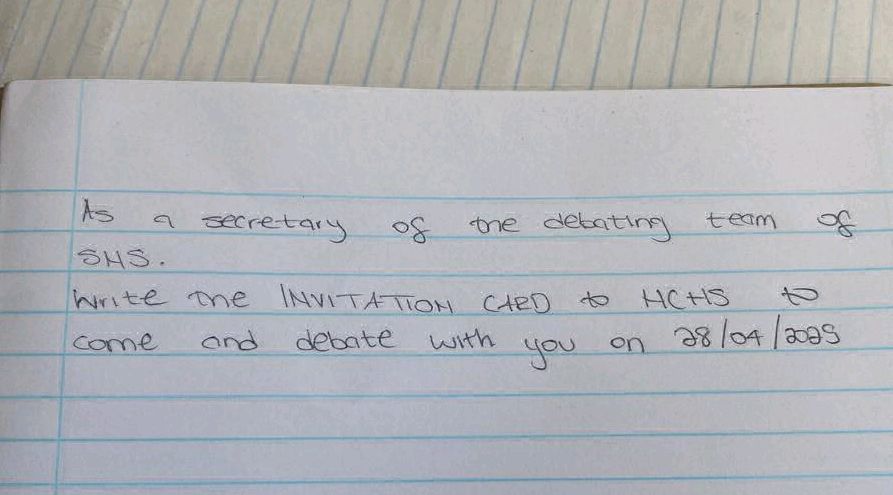 As a secretary of the debating team of
SHS.
Write the INVITATION CARD to HCHS to
come and debate with you on 28/04/2025